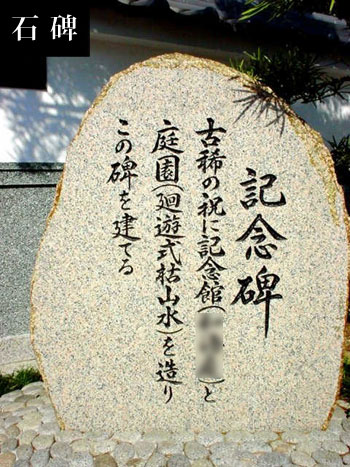 石碑
記念碑
古稀の祝に記念館( )と
庭園(廻遊式枯山水)を造り
この碑を建てる